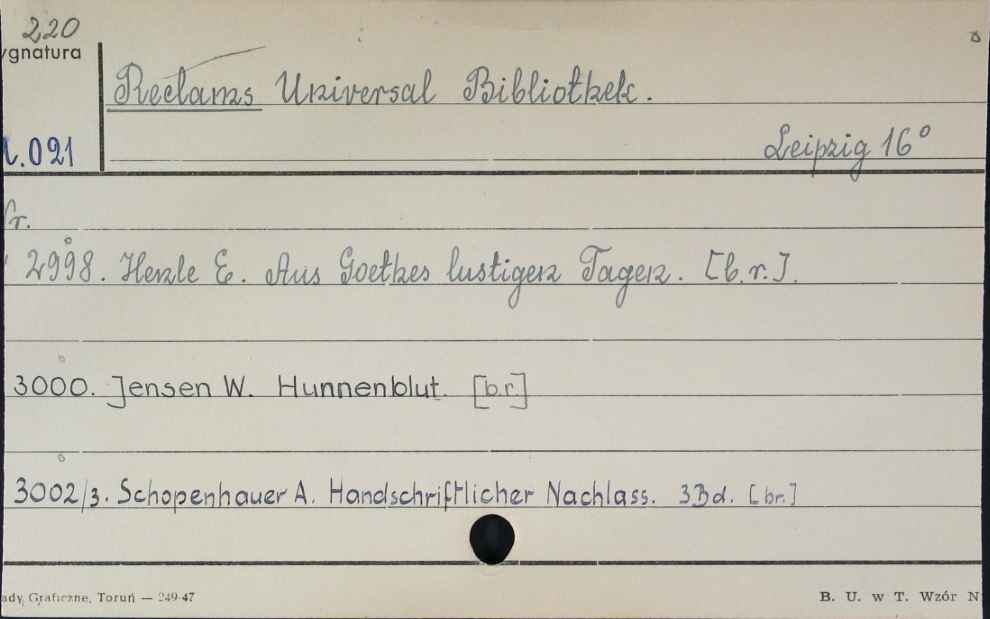 220
ygnatura
Reclams Universal Bibliothek.
.021
Leipzig 16°
Nr.
2998. Henle E. Aus Goethes lustigen Tagen. [b.r.].
3000. Jensen W. Hunnenblut. [b.r.]
3002/3. Schopenhauer A. Handschriftlicher Nachlass. 3Bd. [br.]
ady, Graficzne, Toruń — 249-47
B. U. w T. Wzór N